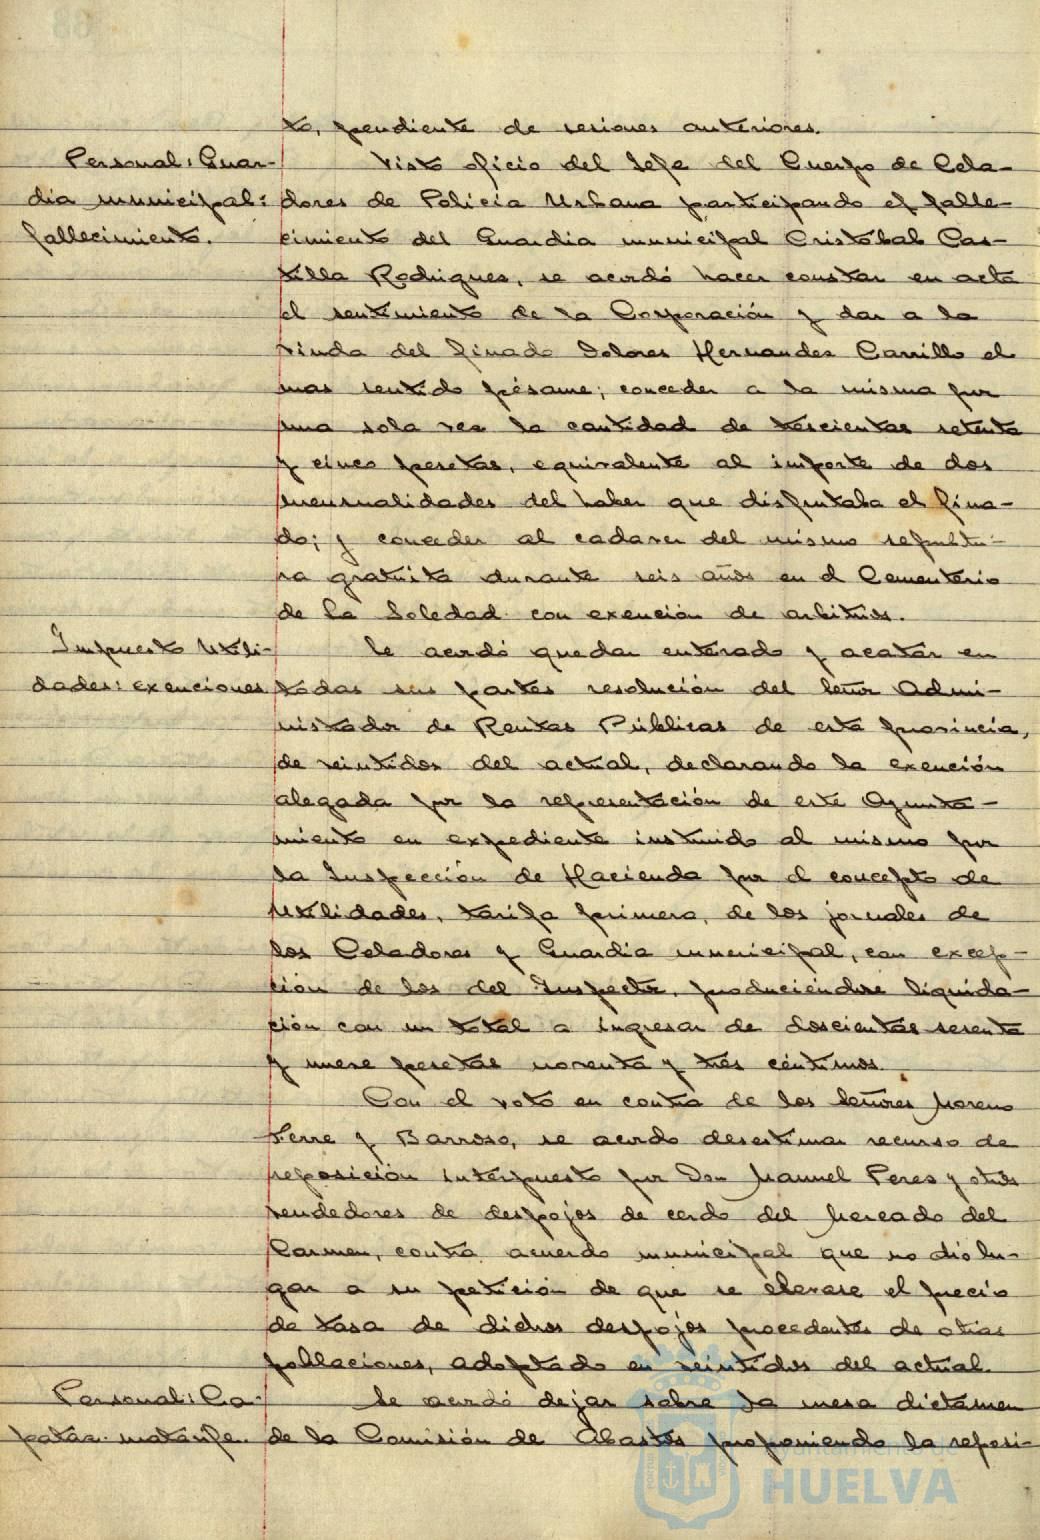 to, pendiente de sesiones anteriores.
Personal: Guar-
dia municipal:
fallecimiento.
Visto oficio del Jefe del Cuerpo de Cela-
dores de Policía Urbana participando el falle-
cimiento del Guardia municipal Cristóbal Cas-
tilla Rodrigues, se acordó hacer constar en acta
el sentimiento de la Corporación y dar a la
viuda del finado Dolores Hernandes Carrillo el
mas sentido pésame; conceder a la misma por
una sola vez la cantidad de trescientas setenta
y cinco pesetas, equivalente al importe de dos
mensualidades del haber que disfrutaba el fina-
do; y conceder al cadaver del mismo sepultu-
ra gratuita durante seis años en el Cementerio
de la Soledad con exención de arbitrios.
Impuesto Utili-
dades: exenciones
Se acordó quedar enterado y acatar en
todas sus partes resolución del Señor Admi-
nistrador de Rentas Públicas de esta provincia,
de veintidos del actual, declarando la exención
alegada por la representación de este Ayunta-
miento en expediente instruido al mismo por
la Inspección de Hacienda por el concepto de
Utilidades, tarifa primera, de los jornales de
los Celadores y Guardia municipal, con excep-
ción de los del Inspector, produciéndose liquida-
ción con un total a ingresar de doscientas sesenta
y nueve pesetas noventa y tres céntimos.
Con el voto en contra de los Señores Moreno
Ferre y Barroso, se acordo desestimar recurso de
reposición interpuesto por Don Manuel Peres y otros
vendedores de despojos de cerdo del Mercado del
Carmen, contra acuerdo municipal que no dió lu-
gar a su petición de que se elevase el precio
de tasa de dichos despojos procedentes de otras
poblaciones, adoptado en veintidos del actual.
Personal: Ca-
pataz matarife.
Se acordó dejar sobre la mesa dictamen
de la Comisión de Abastos proponiendo la reposi-
Ayuntamiento de
HUELVA